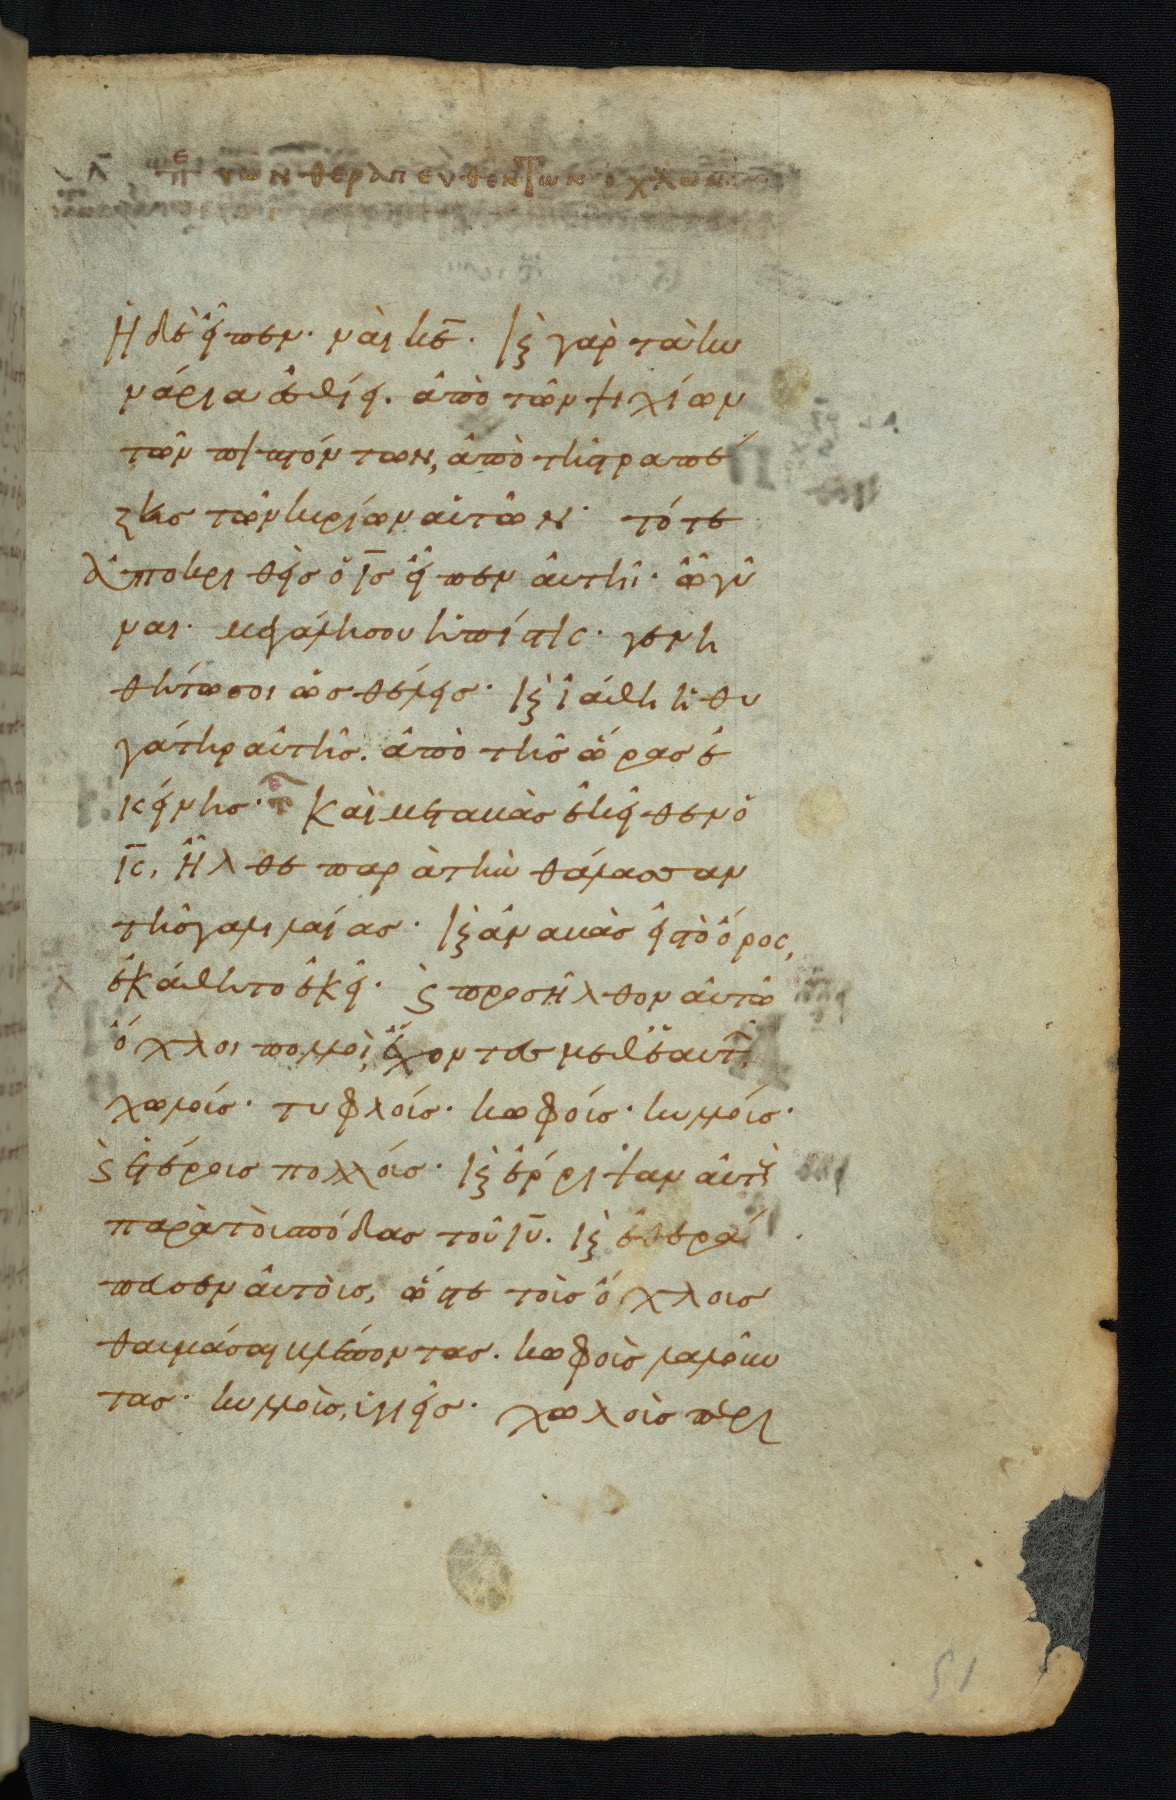 Λ̅ πε τῶν θεραπευθέντων ὄχλων
Ἡ δὲ εἶπεν· ναὶ κ̅ε̅· καὶ γὰρ τὰ κυ
νάρια ἐσθίει. ἀπὸ τῶν ψιχίων
τῶν πιπτόντων, ἀπὸ τῆς τραπέ
ζης τῶν κυρίων αὐτῶν· τότε
ἀποκριθεὶς ὁ ι̅ς̅ εἶπεν αὐτῆ· ὦ γύ
ναι· μεγάλη σου ἡ πίστις· γενη
θήτω σοι ὡς θέλεις· καὶ ἰάθη ἡ θυ
γάτηρ αὐτῆς. ἀπὸ τῆς ὥρας ἐ
κείνης· Καὶ μεταβὰς ἐκεῖθεν ὁ
ι̅ς̅, ἦλθε παρὰ τὴν θάλασσαν
τῆς γαλιλαίας· καὶ ἀναβὰς εἰς τὸ ὄρος,
ἐκάθητο ἐκεῖ· ϗ προσῆλθον αὐτῶ
ὄχλοι πολλοὶ, ἔχοντες μεθ' ἑαυτῶν
χωλούς· τυφλούς· κωφούς· κυλλούς·
ϗ ἑτέρους πολλούς· καὶ ἔρριψαν αὐτοὺς
παρὰ τοὺς πόδας τοῦ ι̅υ̅. καὶ ἐθερά
πευσεν αὐτοὺς, ὥστε τοὺς ὄχλους
θαυμάσαι βλέποντας. κωφοὺς λαλοῦν
τας· κυλλοὺς, ὑγιεῖς· χωλοὺς περι
51